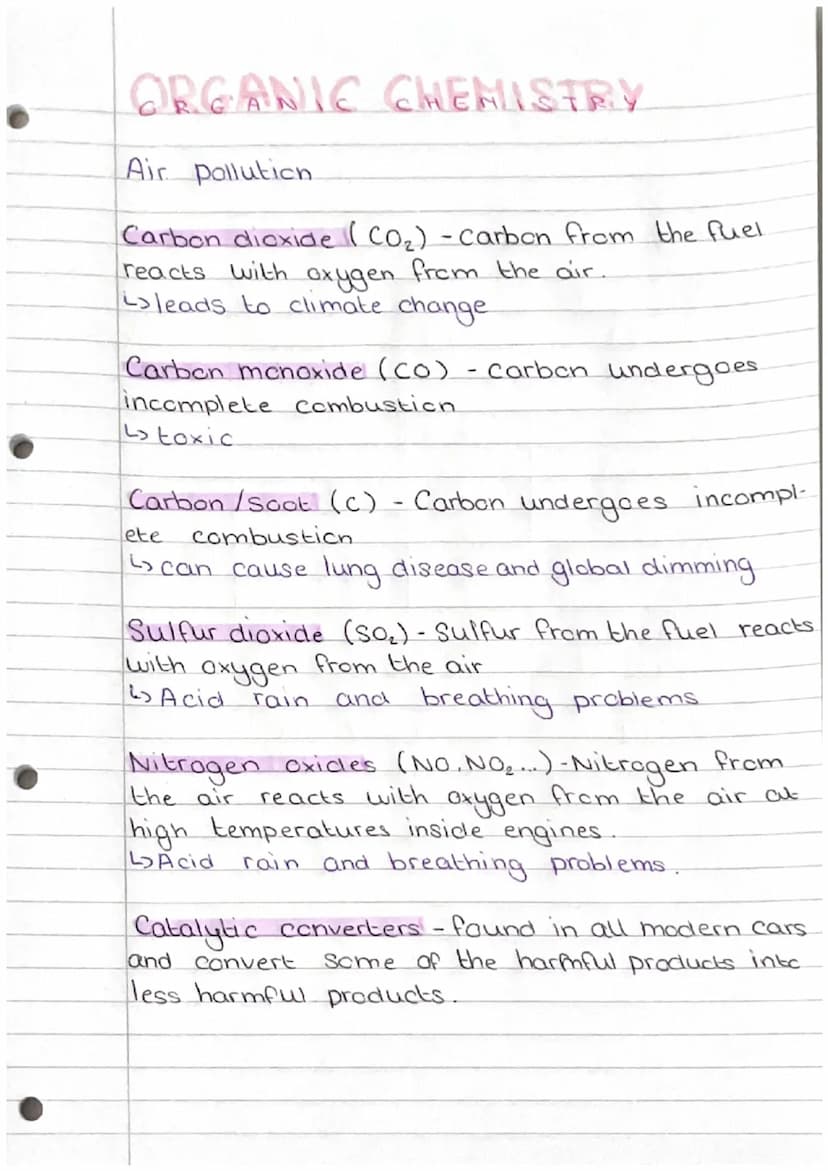 ORGANIC CHEMISTRY
Air pollution
Carbon dioxide (CO₂) - carbon from the fuel
reacts with oxygen from the air.
↳ leads to climate change
Carbon monoxide (CO) - carbon undergoes
incomplete combustion
↳ toxic
Carbon/soot (C) - Carbon undergoes incompl-
ete combustion
↳ can cause lung disease and global dimming
Sulfur dioxide (SO₂) - Sulfur from the fuel reacts
with oxygen from the air
↳ Acid rain and breathing problems
Nitrogen oxides (NO, NO₂...) - Nitrogen from
the air reacts with oxygen from the air at
high temperatures inside engines.
↳ Acid rain and breathing problems.
Catalytic converters - found in all modern cars
and convert some of the harmful products into
less harmful products.